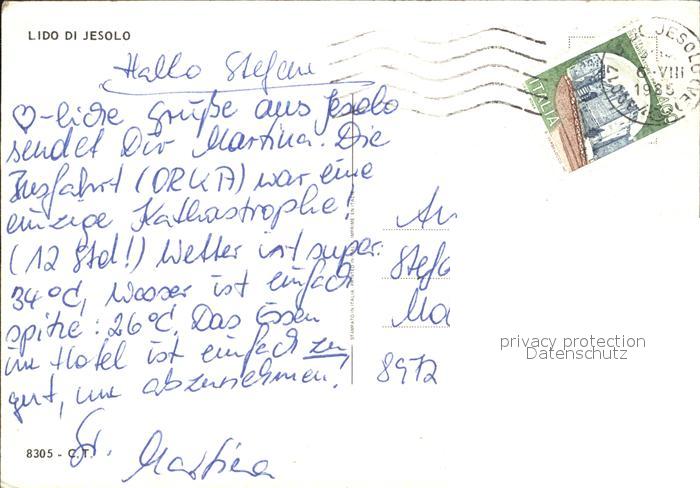 LIDO DI JESOLO
Hallo Stefan
♡-liche Grüße aus Jesolo
sendet Dir Martina. Die
Busfahrt (ORKA) war eine
einzige Kathastrophe!
(12 Std!) Wetter ist super:
34°C, Wasser ist einfach
spitze: 26°C. Das Essen
im Hotel ist einfach zu
gut, um abzunehmen!
Martina
8305 - C.T.
An
Stefa
Ma
8972
ITALIA
JESOLO
6 VIII
1985
privacy protection
Datenschutz